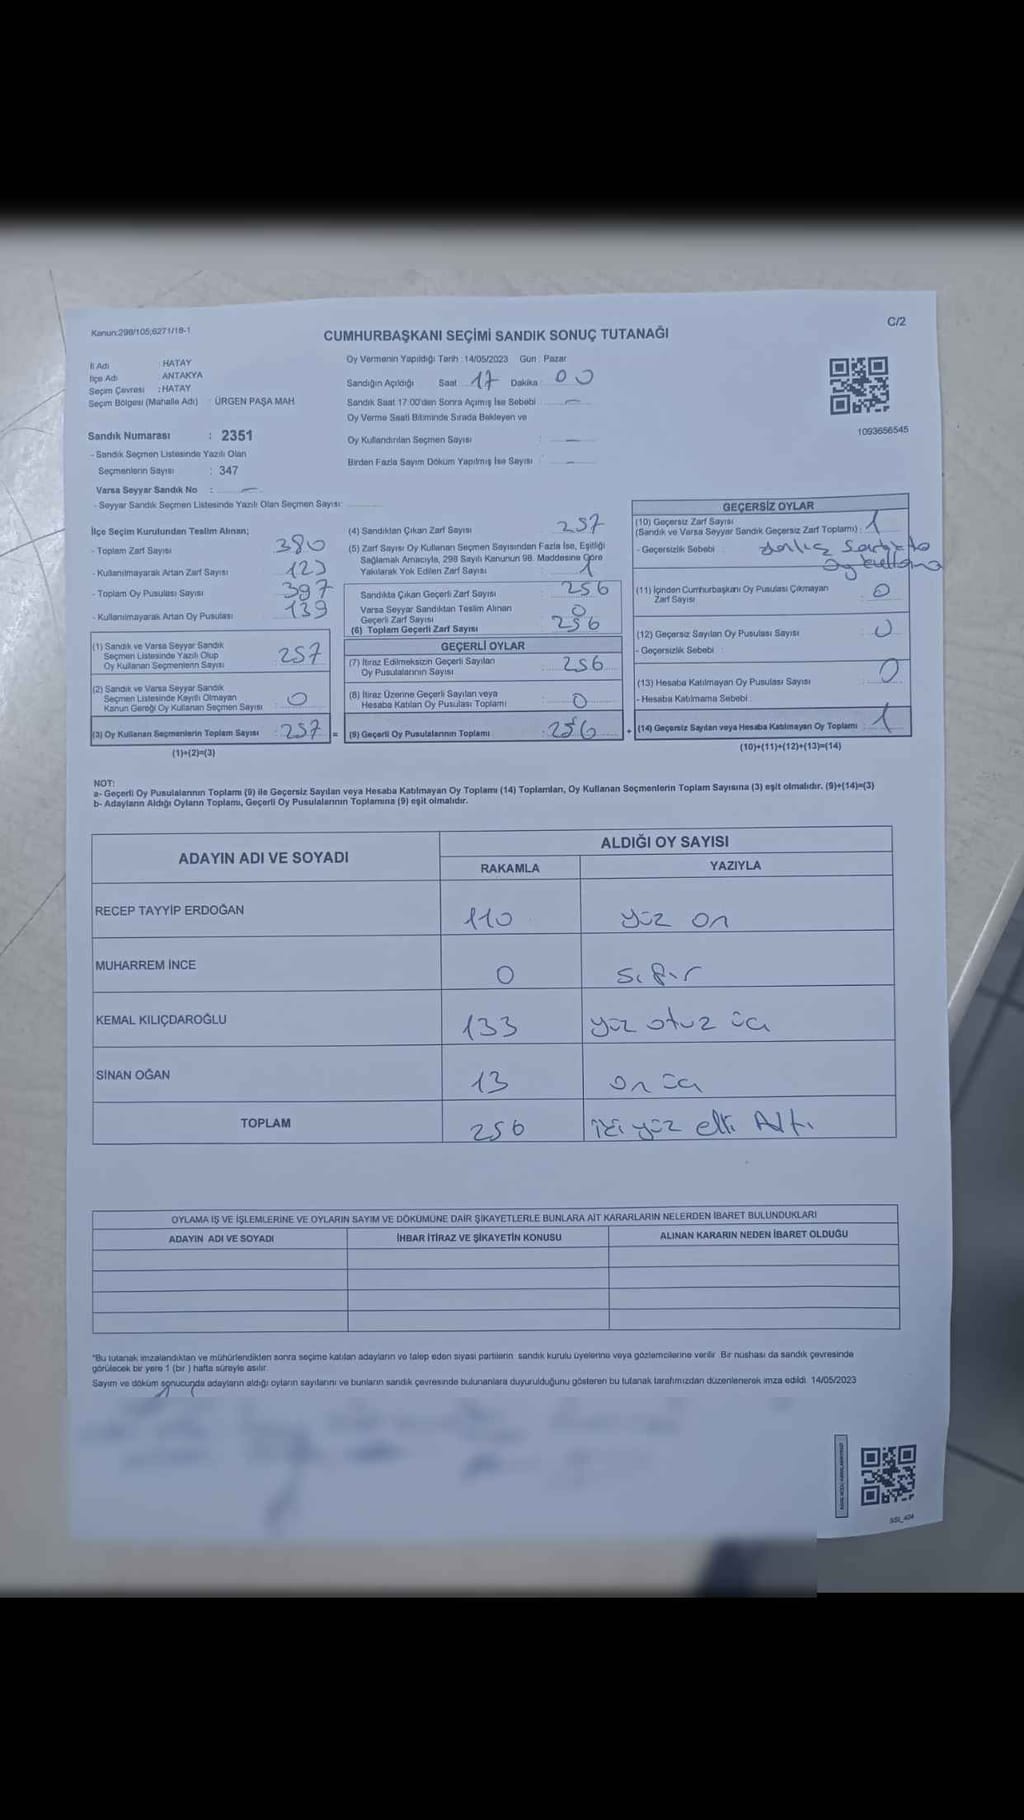 Kanun:298/105;6271/18-1
C/2
CUMHURBAŞKANI SEÇİMİ SANDIK SONUÇ TUTANAĞI
İl Adı : HATAY
İlçe Adı : ANTAKYA
Seçim Çevresi : HATAY
Seçim Bölgesi (Mahalle Adı) : ÜRGEN PAŞA MAH
Sandık Numarası : 2351
- Sandık Seçmen Listesinde Yazılı Olan
Seçmenlerin Sayısı : 347
Varsa Seyyar Sandık No : —
- Seyyar Sandık Seçmen Listesinde Yazılı Olan Seçmen Sayısı:
Oy Vermenin Yapıldığı Tarih : 14/05/2023 Gün : Pazar
Sandığın Açıldığı Saat 17 Dakika 00
Sandık Saat 17:00'den Sonra Açımış İse Sebebi : —
Oy Verme Saati Bitiminde Sırada Bekleyen ve
Oy Kullandırılan Seçmen Sayısı : —
Birden Fazla Sayım Döküm Yapılmış İse Sayısı : —
1093656545
İlçe Seçim Kurulundan Teslim Alınan;
- Toplam Zarf Sayısı 380
- Kullanılmayarak Artan Zarf Sayısı 123
- Toplam Oy Pusulası Sayısı 397
- Kullanılmayarak Artan Oy Pusulası 139
(1) Sandık ve Varsa Seyyar Sandık
Seçmen Listesinde Yazılı Olup
Oy Kullanan Seçmenlerin Sayısı 257
(2) Sandık ve Varsa Seyyar Sandık
Seçmen Listesinde Kayıtlı Olmayan
Kanun Gereği Oy Kullanan Seçmen Sayısı 0
(3) Oy Kullanan Seçmenlerin Toplam Sayısı : 257 =
(1)+(2)=(3)
(4) Sandıktan Çıkan Zarf Sayısı 257
(5) Zarf Sayısı Oy Kullanan Seçmen Sayısından Fazla İse, Eşitliği
Sağlamak Amacıyla, 298 Sayılı Kanunun 98. Maddesine Göre
Yakılarak Yok Edilen Zarf Sayısı 1
Sandıkta Çıkan Geçerli Zarf Sayısı 256
Varsa Seyyar Sandıktan Teslim Alınan
Geçerli Zarf Sayısı 0
(6) Toplam Geçerli Zarf Sayısı 256
GEÇERLİ OYLAR
(7) İtiraz Edilmeksizin Geçerli Sayılan
Oy Pusulalarının Sayısı 256
(8) İtiraz Üzerine Geçerli Sayılan veya
Hesaba Katılan Oy Pusulası Toplamı 0
(9) Geçerli Oy Pusulalarının Toplamı : 256 +
GEÇERSİZ OYLAR
(10) Geçersiz Zarf Sayısı
(Sandık ve Varsa Seyyar Sandık Geçersiz Zarf Toplamı) : 1
- Geçersizlik Sebebi :
(11) İçinden Cumhurbaşkanı Oy Pusulası Çıkmayan
Zarf Sayısı 0
(12) Geçersiz Sayılan Oy Pusulası Sayısı 0
- Geçersizlik Sebebi :
(13) Hesaba Katılmayan Oy Pusulası Sayısı 0
- Hesaba Katılmama Sebebi :
(14) Geçersiz Sayılan veya Hesaba Katılmayan Oy Toplamı : 1
(10)+(11)+(12)+(13)=(14)
NOT:
a- Geçerli Oy Pusulalarının Toplamı (9) ile Geçersiz Sayılan veya Hesaba Katılmayan Oy Toplamı (14) Toplamları, Oy Kullanan Seçmenlerin Toplam Sayısına (3) eşit olmalıdır. (9)+(14)=(3)
b- Adayların Aldığı Oyların Toplamı, Geçerli Oy Pusulalarının Toplamına (9) eşit olmalıdır.
ADAYIN ADI VE SOYADI ALDIĞI OY SAYISI
RAKAMLA YAZIYLA
RECEP TAYYİP ERDOĞAN 110 yüz on
MUHARREM İNCE 0 sıfır
KEMAL KILIÇDAROĞLU 133 yüz otuz üç
SİNAN OĞAN 13 on üç
TOPLAM 256 iki yüz elli Altı
OYLAMA İŞ VE İŞLEMLERİNE VE OYLARIN SAYIM VE DÖKÜMÜNE DAİR ŞİKAYETLERLE BUNLARA AİT KARARLARIN NELERDEN İBARET BULUNDUKLARI
ADAYIN ADI VE SOYADI İHBAR İTİRAZ VE ŞİKAYETİN KONUSU ALINAN KARARIN NEDEN İBARET OLDUĞU
*Bu tutanak imzalandıktan ve mühürlendikten sonra seçime katılan adayların ve talep eden siyasi partilerin sandık kurulu üyelerine veya gözlemcilerine verilir. Bir nüshası da sandık çevresinde
görülecek bir yere 1 (bir ) hafta süreyle asılır.
Sayım ve döküm sonucunda adayların aldığı oyların sayılarını ve bunların sandık çevresinde bulunanlara duyurulduğunu gösteren bu tutanak tarafımızdan düzenlenerek imza edildi. 14/05/2023